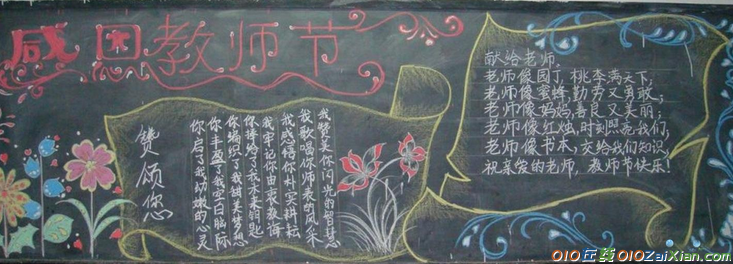 感恩教师节
赞颂您
你启了我幼嫩的心灵
你丰盈了我空白脑际
你编织了我甜美梦想
你捧给了我未来钥匙
我牢记你由衷教诲
我感悟你朴实耕耘
我歌唱你师表的风采
我赞美你闪光的智慧
献给老师,
老师像园丁,桃李满天下;
老师像蜜蜂,勤劳又勇敢;
老师像妈妈,善良又美丽;
老师像红烛,时刻照亮我们;
老师像书本,交给我们知识,
祝亲爱的老师,教师节快乐!
010在线 010ZaiXian.com